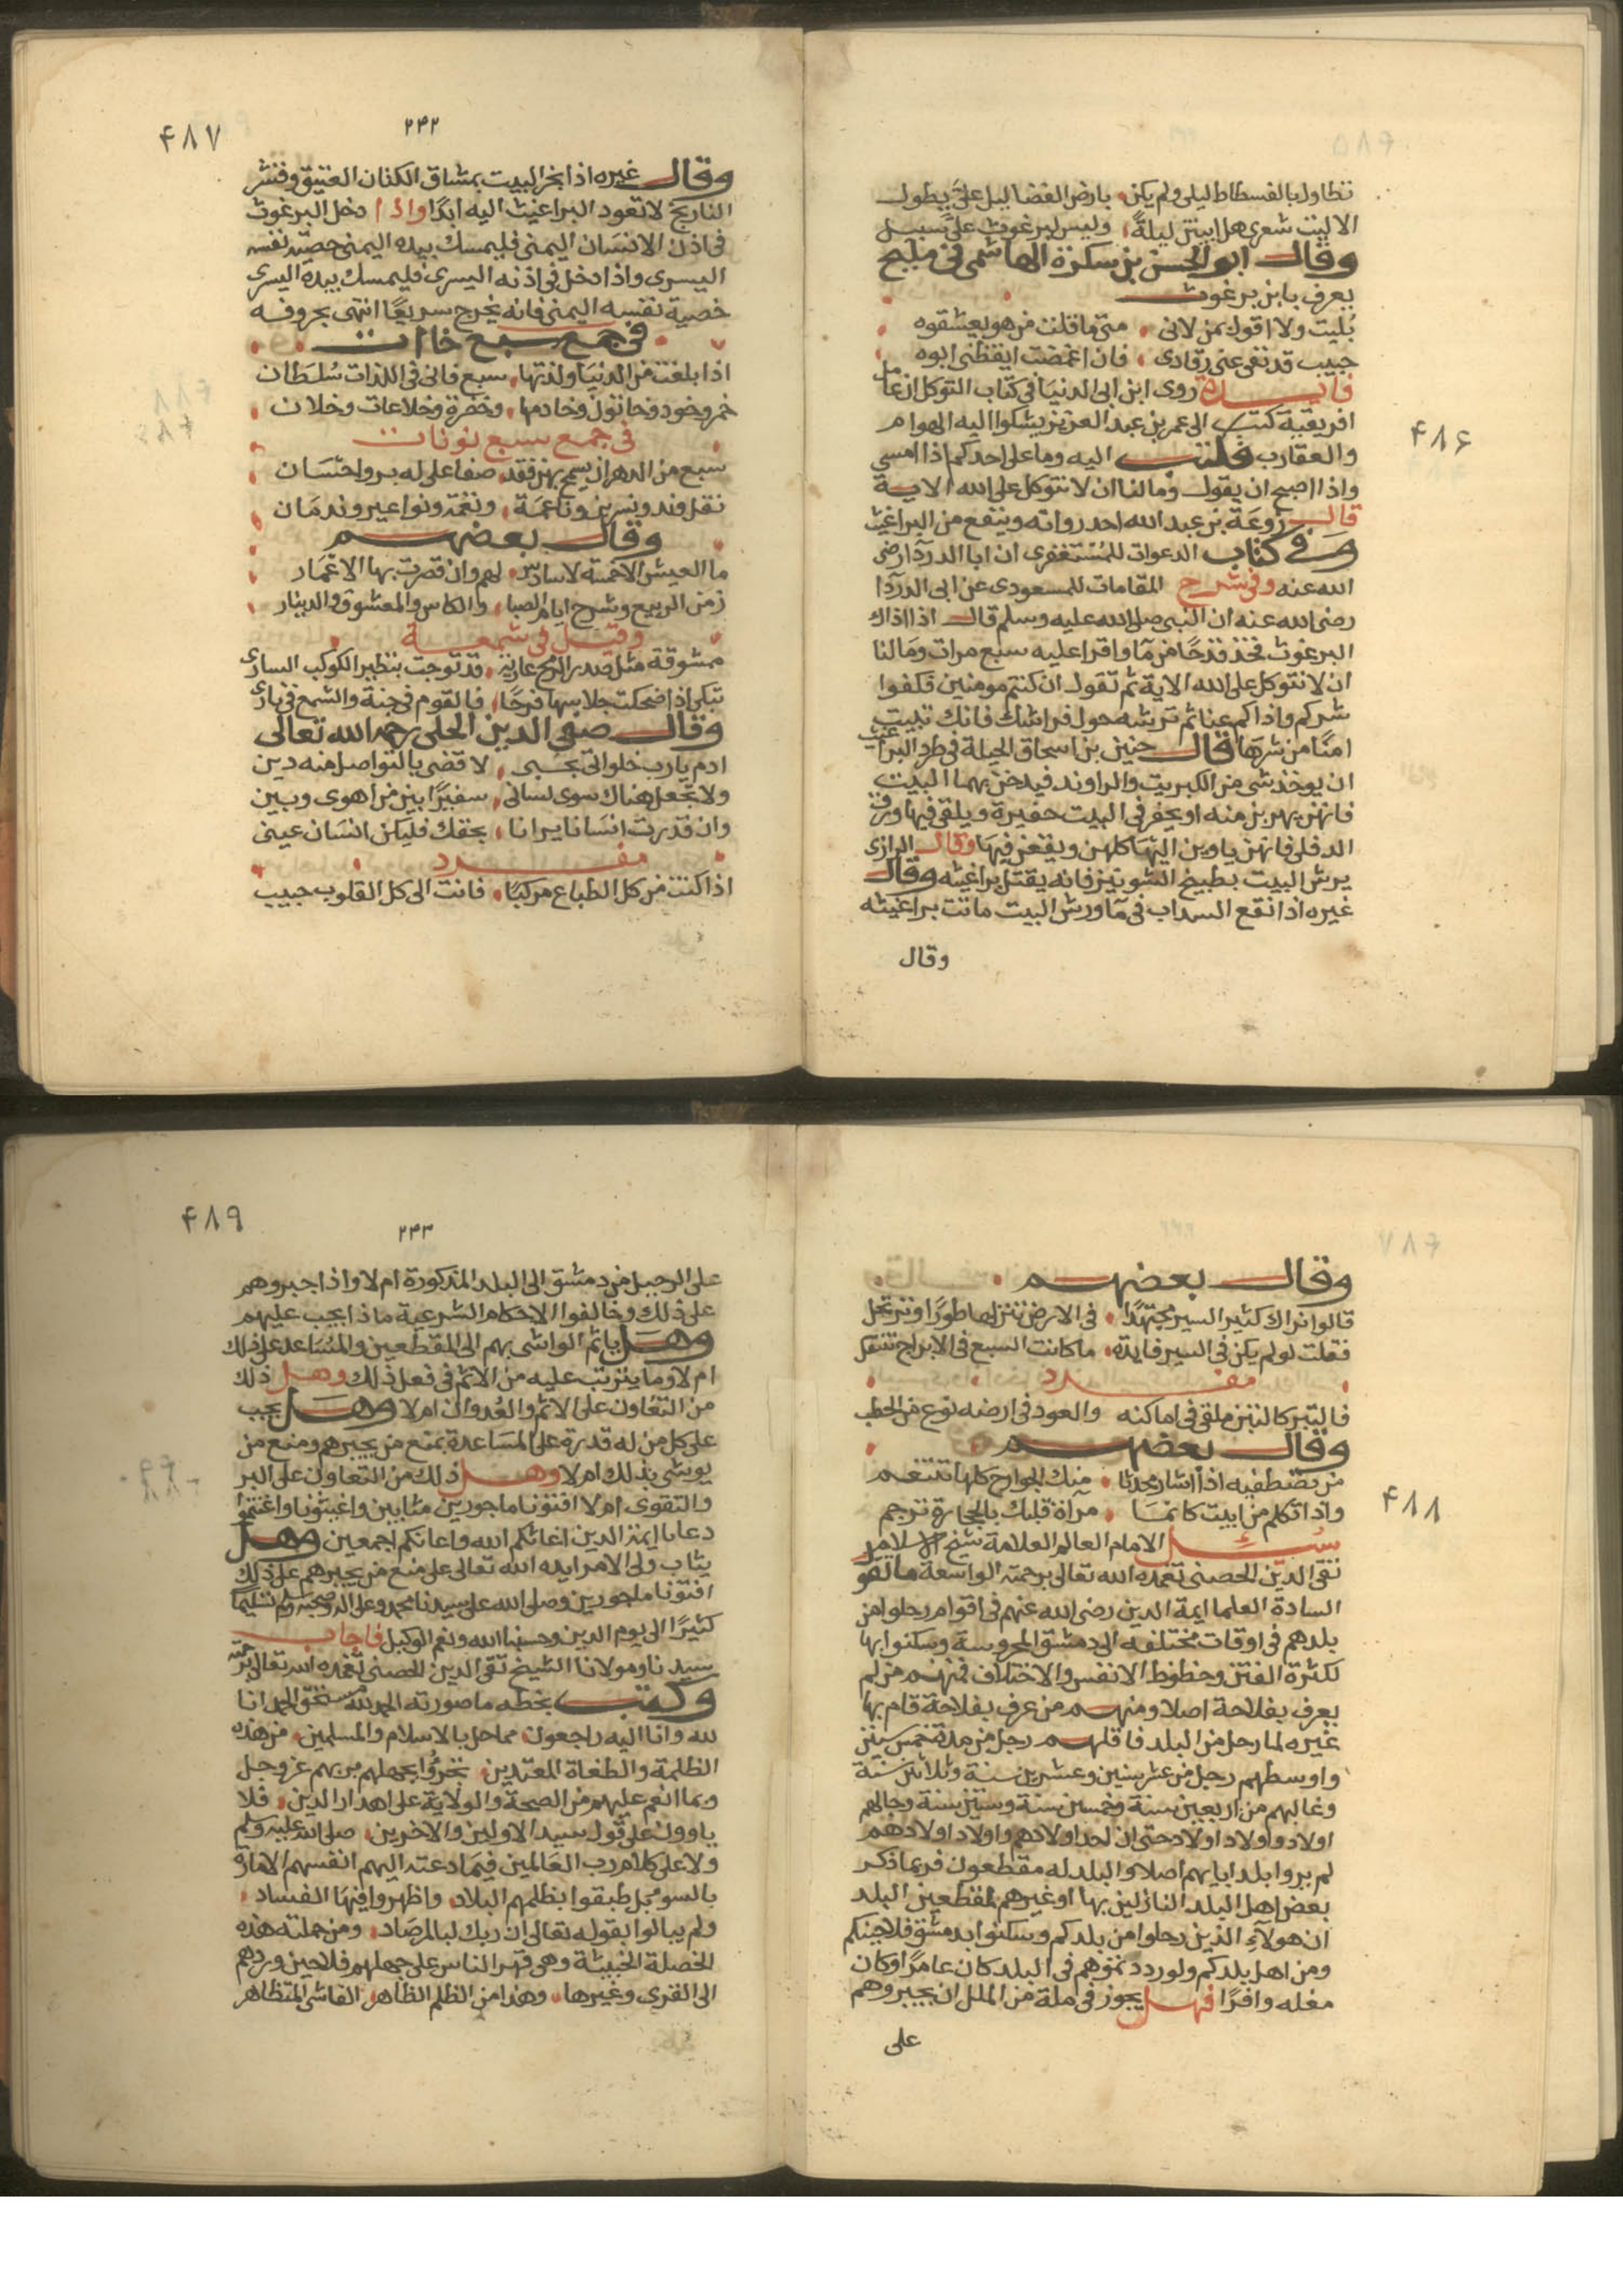 تطاول بالفسطاط ليلى ولم يكن بارض الغضا ليل علىَّ يطول
الا ليت شعرى هل ابيتن ليلةً وليس لبرغوث علىَّ سبيل
وقال ابو الحسن بن سكرة الهاشمى فى مليح
يعرف بابن برغوث
بُليت ولا اقول بمن لانى متى ما قلت من هو يعشقوه
حبيب قد نفى عنى رقادى فان اغمضت ايقظنى ابوه
فايدة روى ابن ابى الدنيا فى كتاب التوكل ان عامل
افريقية كتب الى عمر بن عبد العزيز يشكوا اليه الهوام
والعقارب فكتب اليه وما على احدكم اذا امسي
واذا اصبح ان يقول وما لنا ان لا نتوكل على الله الاية
قال زوعة بن عبد الله احد رواته وينفع من البراغيث
وفى كتاب الدعوات للمستغفرى ان ابا الدردآ رضى
الله عنه وفى شرح المقامات للمسعودى عن ابى الدردآ
رضى الله عنه ان النبى صلى الله عليه وسلم قال اذا اذاك
البرغوث فخذ قدحًا من مآ واقرا عليه سبع مرات وما لنا
ان لا نتوكل على الله الاية ثم تقول ان كنتم مومنين فكفوا
شركم واذاكم عنا ثم ترشه حول فراشك فانك تبيت
امنًا من شرها قال حنين بن اسحاق الحيلة فى طرد البراغيث
ان يوخذ شى من الكبريت والراوند فيدخن بهما البيت
فانهن يهربن منه او يحفر فى البيت حفيرة ويلقى فيها ورق
الدفلى فانهن ياوين اليها كلهن ويقعن فيها وقال الرازى
يرش البيت بطبيخ الشونيز فانه يقتل براغيثه وقال
غيره اذا نقع السداب فى مآ ورش البيت ماتت براغيثه
وقال
۴۸۶
۴۸۷
۲۴۲
وقال غيره اذا بخر البيت بمشاق الكتان العتيق وقشر
النارنج لا تعود البراغيث اليه ابدًا واذا دخل البرغوث
فى اذن الانسان اليمنى فليمسك بيده اليمنى خصيته نفسه
اليسرى واذا دخل فى اذنه اليسرى فليمسك بيده اليسرى
خصية نفسه اليمنى فانه يخرج سريعًا انتهى بحروفه
فى جمع سبع خاات
اذا بلغت من الدنيا ولذتها سبع فانى فى اللذات سُلطان
خمر وخود وخاتول وخادمها وخضرة وخلاعات وخلان
فى جمع سبع نونات
سبع من الدهر ان يسمح بهن فقد صفا على له بر واحسان
نقل وند ونسرين وناعمة ونغمة ونواعير وندمان
وقال بعضهم
ما العيش الا خمسة لا سادس لهم وان قصرت بها الاعمار
زمن الربيع وشرخ ايام الصبا والكاس والمعشوق والدينار
وقيل فى شمعة
ممشوقة مثل صدر الرمح عارية قد توجت بنظير الكوكب السارى
تبكى اذا ضحكت جلاسها فرحًا فالقوم فى جنة والشمع فى نار
وقال صفى الدين الحلى رحمه الله تعالى
ادم يارب خلواتى بحبى لاقضى بالتواصل منه دين
ولا تجعل هناك سوى لسانى سفيرًا بين من اهوى وبين
وان قدرت انسانا يرانا بحقك فليكن انسان عينى
مفرد
اذا كنت من كل الطباع مركبًا فانت الى كل القلوب حبيب
وقال بعضهم
قالوا نراك كثير السير مجتهدًا فى الارض تنزلها طورًا وترتحل
فقلت لو لم يكن فى السير فايدة ما كانت السبع فى الابراج تنتقل
مفرد
فالتبر كالتبن ملقى فى اماكنه والعود فى ارضه نوع من الحطب
وقال بعضهم
من تصطفيه اذا اشار محدثا منك الجوارح كلها تتنغم
واذا تكلم من ابيت كانما مراة قلبك بالحجارة ترجم
سئل الامام العالم العلامة شيخ الاسلام
تقى الدين الحصنى تغمده الله تعالى برحمته الواسعة ما تقو
السادة العلما ايمة الدين رضى الله عنهم فى اقوام رحلوا من
بلدهم فى اوقات مختلفه الى دمشق المحروسة وسكنوا بها
لكثرة الفتن وحظوظ الانفس والاختلاف فمنهم من لم
يعرف بفلاحة اصلا ومنهم من عرف بفلاحة قام بها
غيره لما رحل من البلد فاقلهم رجل من مدة خمس سنين
واوسطهم رجل من عشر سنين وعشرين سنة وثلاثين سنة
وغالبهم من اربعين سنة وخمسين سنة وستين سنة وجالهم
اولاد واولاد اولاد حتى ان احد اولادهم واولاد اولادهم
لم يروا بلد ابايهم اصلا والبلد له مقطعون فربما ذكر
بعض اهل البلد النازلين بها او غيرهم لمقطعين البلد
ان هولآء الذين رحلوا من بلدكم وسكنوا بدمشق فلاحينكم
ومن اهل بلدكم ولو رددتموهم فى البلد كان عامرًا وكان
مغله وافرًا فهل يجوز فى ملة من الملل ان يجبروهم
على
۴۸۸
۴۸۹
۲۴۳
على الرحيل من دمشق الى البلد المذكورة ام لا واذا اجبروهم
على ذلك وخالفوا الاحكام الشرعية ماذا يجب عليهم
وهل ياثم الواشى بهم الى المقطعين والمساعد على ذلك
ام لا وما يترتب عليه من الاثم فى فعل ذلك وهل ذلك
من التعاون على الاثم والعدوان ام لا وهل يجب
على كل من له قدرة على المساعدة بمنع من يجبرهم ومنع من
يوشى بذلك ام لا وهل ذلك من التعاون على البر
والتقوى ام لا افتونا ماجورين مثابين واغيثونا واغتنموا
دعانا ايمة الدين اغاثكم الله واعانكم اجمعين وهل
يثاب ولى الامر ايده الله تعالى على منع من يجبرهم على ذلك
افتونا ماجورين وصلى الله على سيدنا محمد وعلى اله وصحبه وسلم تسليمًا
كثيرًا الى يوم الدين وحسبنا الله ونعم الوكيل فاجاب
سيدنا ومولانا الشيخ تقى الدين الحصنى تغمده الله تعالى برحمته
وكتب بخطه ما صورته الحمد لله مستحق الحمد انا
لله وانا اليه راجعون مما حل بالاسلام والمسلمين من هذه
الظلمة والطغاة المعتدين تجرؤا بجهلهم بربهم عز وجل
وبما انعم عليهم من الصحة والولاية على اهدار الدين فلا
ياوون على قول سيد الاولين والاخرين صلى الله عليه وسلم
ولا على كلام رب العالمين فيما دعته اليهم انفسهم الامارة
بالسو بل طبقوا بظلمهم البلاد واظهروا فيها الفساد
ولم يبالوا بقوله تعالى ان ربك لبالمرصاد ومن جملته هذه
الخصلة الخبيثة وهى قهر الناس على جعلهم فلاحين وردهم
الى القرى وغيرها وهذا من الظلم الظاهر الفاشى المتظاهر